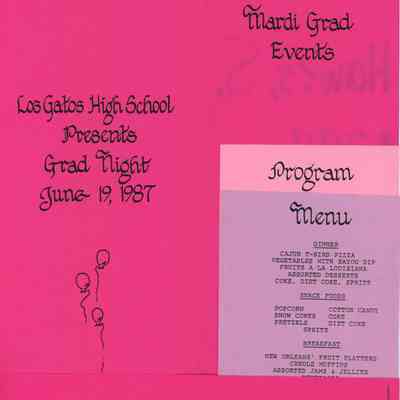 Los Gatos High School
Presents
Grad Night
June 19, 1987
Mardi Grad
Events
Program
Menu
DINNER
CAJUN T-BIRD PIZZA
VEGETABLES WITH BAYOU DIP
FRUITS A LA LOUISIANA
ASSORTED DESSERTS
COKE, DIET COKE, SPRITE
SNACK FOODS
POPCORN COTTON CANDY
SNOW CONES COKE
PRETZELS DIET COKE
SPRITE
BREAKFAST
NEW ORLEANS' FRUIT PLATTERS
CREOLE MUFFINS
ASSORTED JAMS & JELLIES